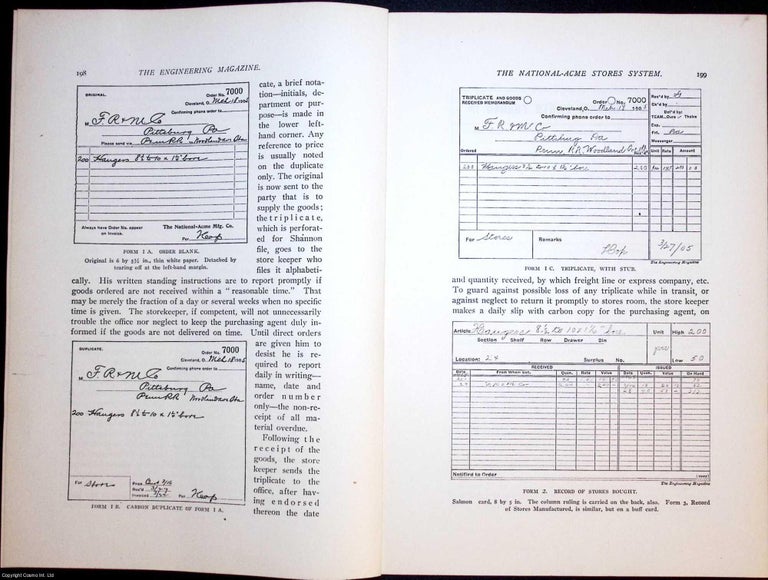 198 THE ENGINEERING MAGAZINE.
ORIGINAL. Order No. 7000
Cleveland, O. Mch 18 1905
Confirming phone order to
M F R & M Co
Pittsburg Pa
Please send via Penn RR
200 Hangers 8½ to 10 x 1½ bore
Always have Order No. appear
on Invoice.
The National-Acme Mfg. Co.
Per
FORM I A. ORDER BLANK.
Original is 6 by 5½ in., thin white paper. Detached by
tearing off at the left-hand margin.
cate, a brief nota-
tion—initials, de-
partment or pur-
pose—is made in
the lower left-
hand corner. Any
reference to price
is usually noted
on the duplicate
only. The original
is now sent to the
party that is to
supply the goods;
the triplicate,
which is perforat-
ed for Shannon
file, goes to the
store keeper who
files it alphabeti-
cally. His written standing instructions are to report promptly if
goods ordered are not received within a "reasonable time." That
may be merely the fraction of a day or several weeks when no specific
time is given. The storekeeper, if competent, will not unnecessarily
trouble the office nor neglect to keep the purchasing agent duly in-
formed if the goods are not delivered on time. Until direct orders
are given him to
desist he is re-
quired to report
daily in writing—
name, date and
order number
only—the non-re-
ceipt of all ma-
terial overdue.
Following the
receipt of the
goods, the store
keeper sends the
triplicate to the
office, after hav-
ing endorsed
thereon the date
DUPLICATE. Order No. 7000
Cleveland, O. Mch 18 1905
Confirming phone order to
M F R & M Co
Pittsburg Pa
Penn RR
200 Hangers 8½ to 10 x 1½ bore
For Stores
Price
Rec'd
Invoiced
Per
FORM I B. CARBON DUPLICATE OF FORM I A.
THE NATIONAL-ACME STORES SYSTEM. 199
TRIPLICATE AND GOODS
RECEIVED MEMORANDUM
Order No. 7000
Cleveland, O.
Confirming phone order to
M F R & M C
Pittsburg Pa
Penn RR Woodland
Rec'd by
Ck'd by
Del'd by:
TEAM—Ours Theirs
Exp.
Frt.
Messenger
Ordered Unit Rate Amount
200 Hangers
For Stores
Remarks
3/27/05
The Engineering Magazine
FORM I C. TRIPLICATE, WITH STUB.
and quantity received, by which freight line or express company, etc.
To guard against possible loss of any triplicate while in transit, or
against neglect to return it promptly to stores room, the store keeper
makes a daily slip with carbon copy for the purchasing agent, on
Article Hangers Unit High 200
Section Shelf Row Drawer Bin
Location: 24 Surplus No. Low 50
RECEIVED ISSUED
Date From Whom Rec. Quan. Rate Value Date Quan. Value On Hand
Notified to Order
The Engineering Magazine
FORM 2. RECORD OF STORES BOUGHT.
Salmon card, 8 by 5 in. The column ruling is carried on the back, also. Form 3, Record
of Stores Manufactured, is similar, but on a buff card.
Copyright Cosmo Int. Ltd